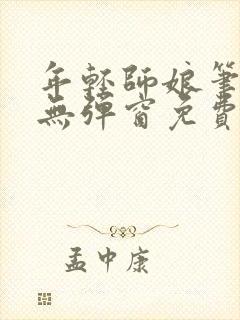 年輕師娘筆
無彈窗免費
孟中康